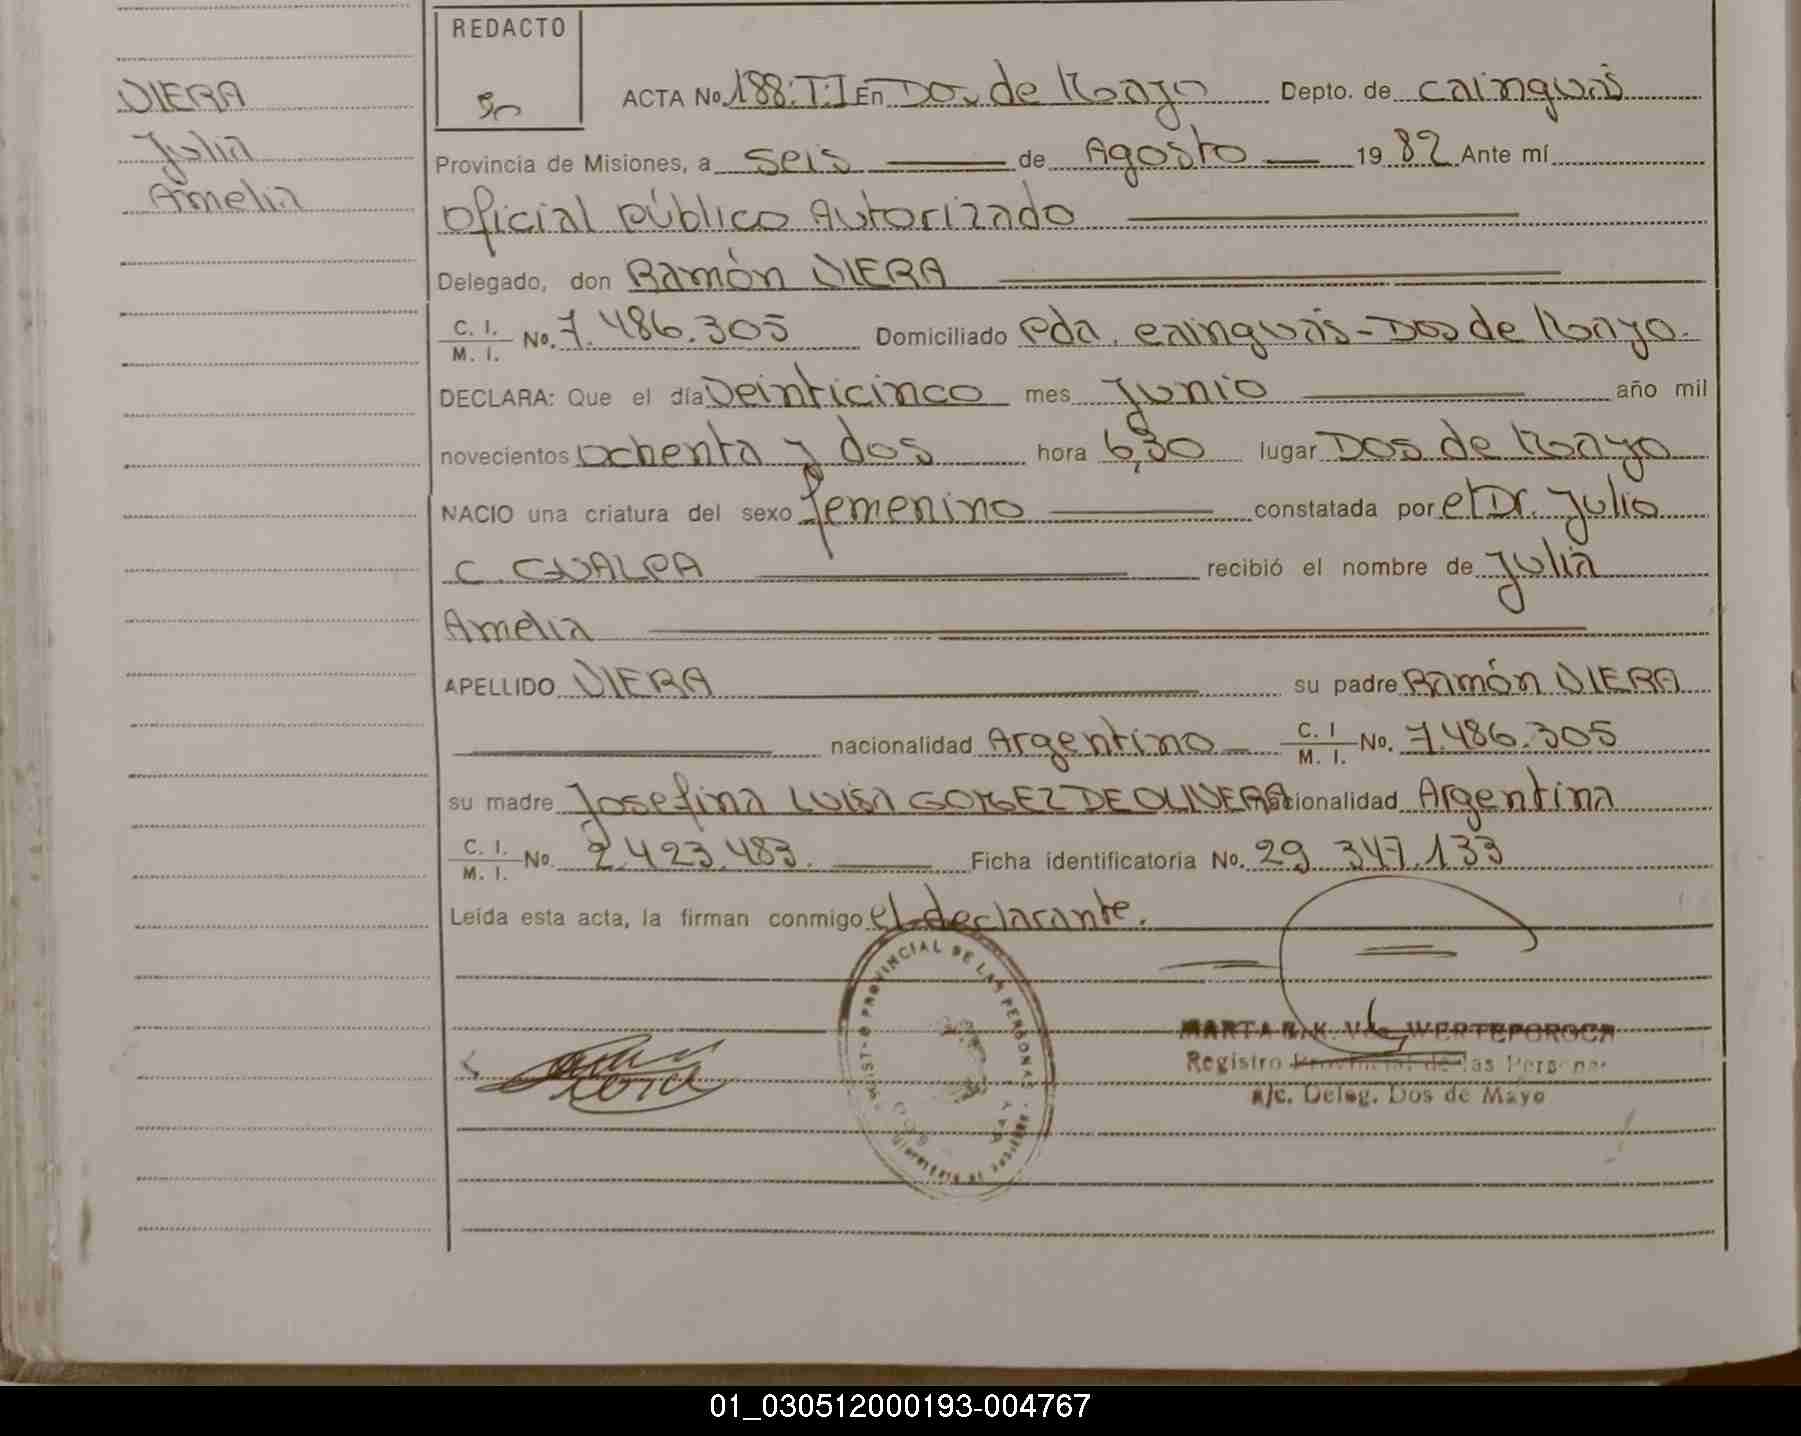 VIERA
Julia
Amelia
REDACTO
ACTA No. 188:T:I En Dos de Mayo Depto. de Cainguás
Provincia de Misiones, a seis de Agosto 1982 Ante mí
oficial público Autorizado
Delegado, don Ramón VIERA
C. I. / M. I. No. 7.486.305 Domiciliado Pda. Cainguás - Dos de Mayo.
DECLARA: Que el día Veinticinco mes Junio año mil
novecientos ochenta y dos hora 6,30 lugar Dos de Mayo
NACIO una criatura del sexo femenino constatada por el Dr. Julio
C. GUALPA recibió el nombre de Julia
Amelia
APELLIDO VIERA su padre Ramón VIERA
nacionalidad Argentino C. I / M. I. No. 7.486.305
su madre Josefina LUISA GOMEZ DE OLIVERA cionalidad Argentina
C. I. / M. I. No. 2.423.483. Ficha identificatoria No. 29 347.133
Leída esta acta, la firman conmigo el declarante.
PROVINCIAL DE LAS PERSONAS
MARTA
Registro Provincial de las Personas
a/c. Deleg. Dos de Mayo
01_030512000193-004767